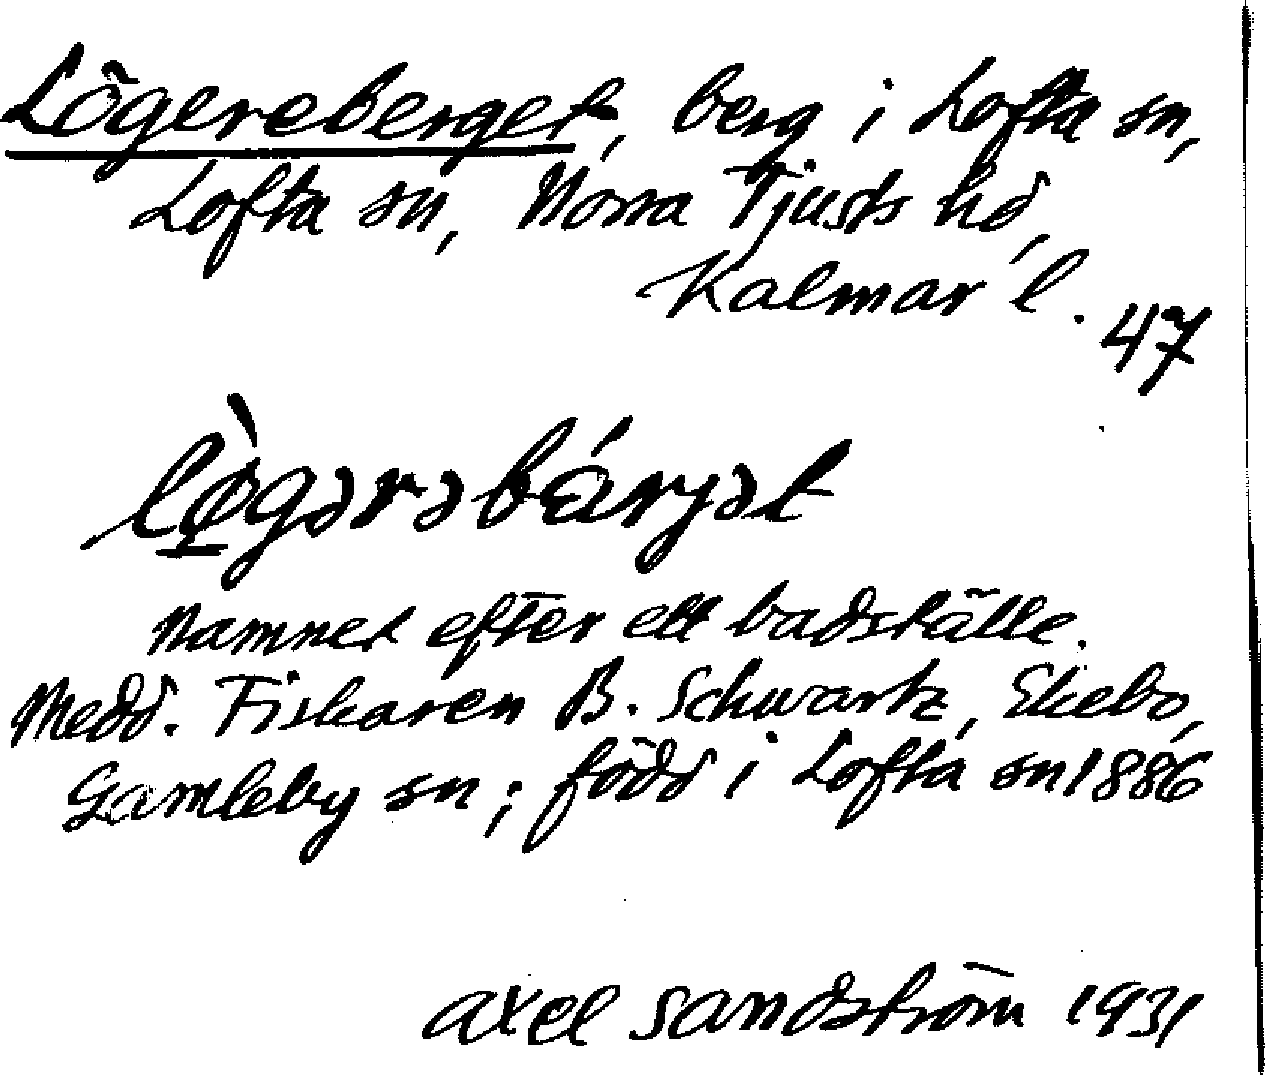 Lögereberget, berg i Lofta sn,
Lofta sn, Norra Tjusts hd,
Kalmar l.
47
lø̀gərəbárgət
Namnet efter ett badställe.
Medd. Fiskaren B. Schwartz, Ekebo,
Gamleby sn; född i Lofta sn 1886
Axel Sandström 1931